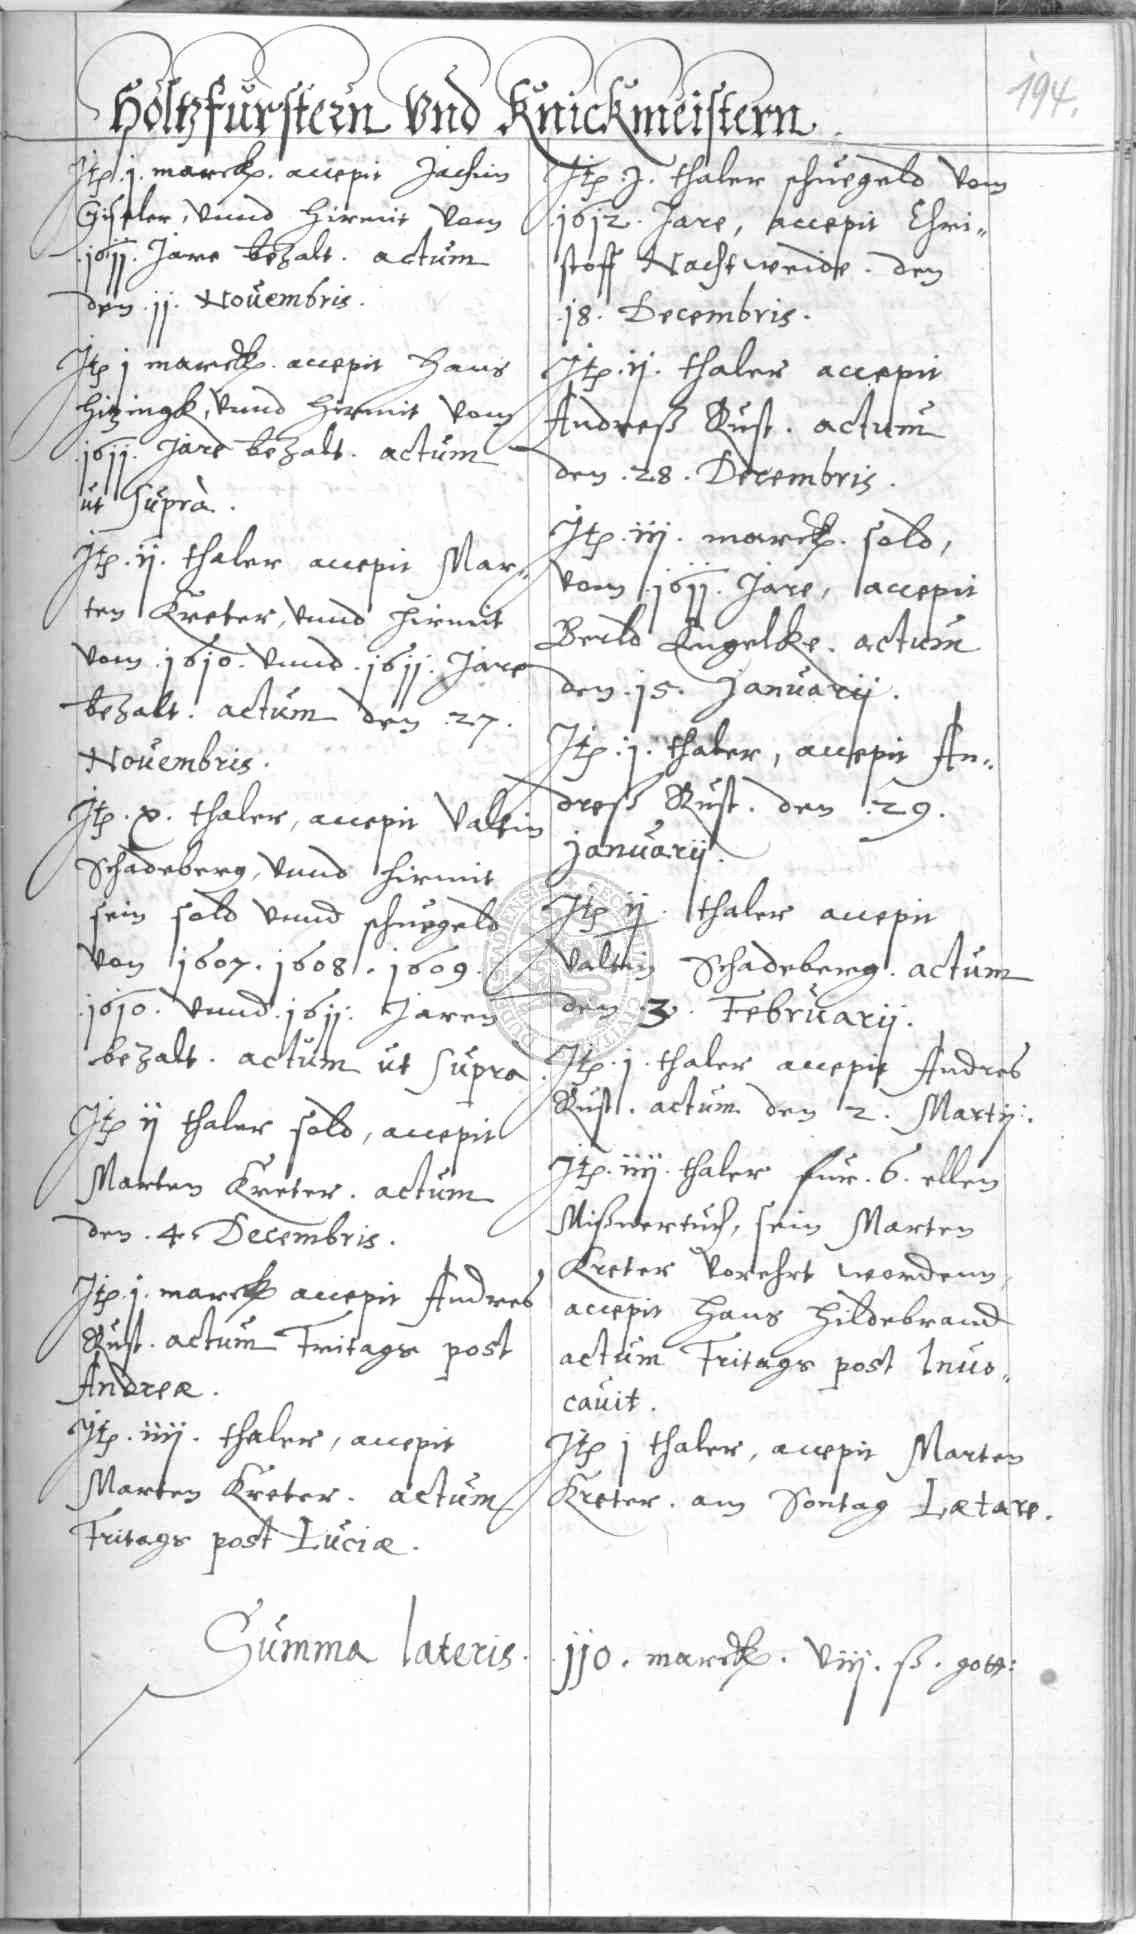 194.
Holtzfurstern Vnd Knickmeistern
Itp. j. marck. accepit Jachim
Giseler, vnnd hirmit vom
.16jj. Jare bezalt. actum
den .jj. Nouembris.
Itp j marck. accepit Hans
Hitzingk, vnnd hirmit vom
.16jj. Jare bezalt. actum
ut suprà.
Itp. ij. thaler accepit Mar-
ten Kreter, vnnd hirmit
vom .16j0. vnnd .16jj. Jare
bezalt. actum den .27.
Nouembris.
Itp. x. thaler, accepit Valtin
Schadeberg, vnnd hirmit
sein sold vnnd schuegeld
von 1607. 1608. 1609.
.16j0. vnnd .16jj. Jaren
bezalt. actum ut supra.
Itp ij thaler sold, accepit
Marten Kreter. actum
den .4. Decembris.
Itp. j. marck accepit Andres
Rust. actum Fritags post
Andreæ.
Itp. iiij. thaler, accepit
Marten Kreter. actum
Fritags post Luciæ.
Itp. j. thaler schuegeld vom
.16j2. Jare, accepit Chri-
stoff Nachtweide. den
.j8. Decembris.
Itp. ij. thaler accepit
Andreß Rust. actum
den .28. Decembris.
Itp. iij. marck. sold,
vom .16jj. Jare, accepit
Berld Engelke. actum
den .j5. Januarij.
Itp. j. thaler, accepit An-
dreß Rust. den .29.
Januarij.
Itp ij. thaler accepit
Valtin Schadeberg. actum
den .3. Februarij.
Itp. j. thaler accepit Andres
Rust. actum den 2. Martij.
Itp. iiij. thaler fur .6. ellen
Mißnertuch, sein Marten
Kreter vorehrt wordenn,
accepit Hans Hildebrand
actum Fritags post Inuo-
cauit.
Itp j thaler, accepit Marten
Kreter. am Sontag Lætare.
Summa lateris. .jj0. marck. viij. ß. gott: